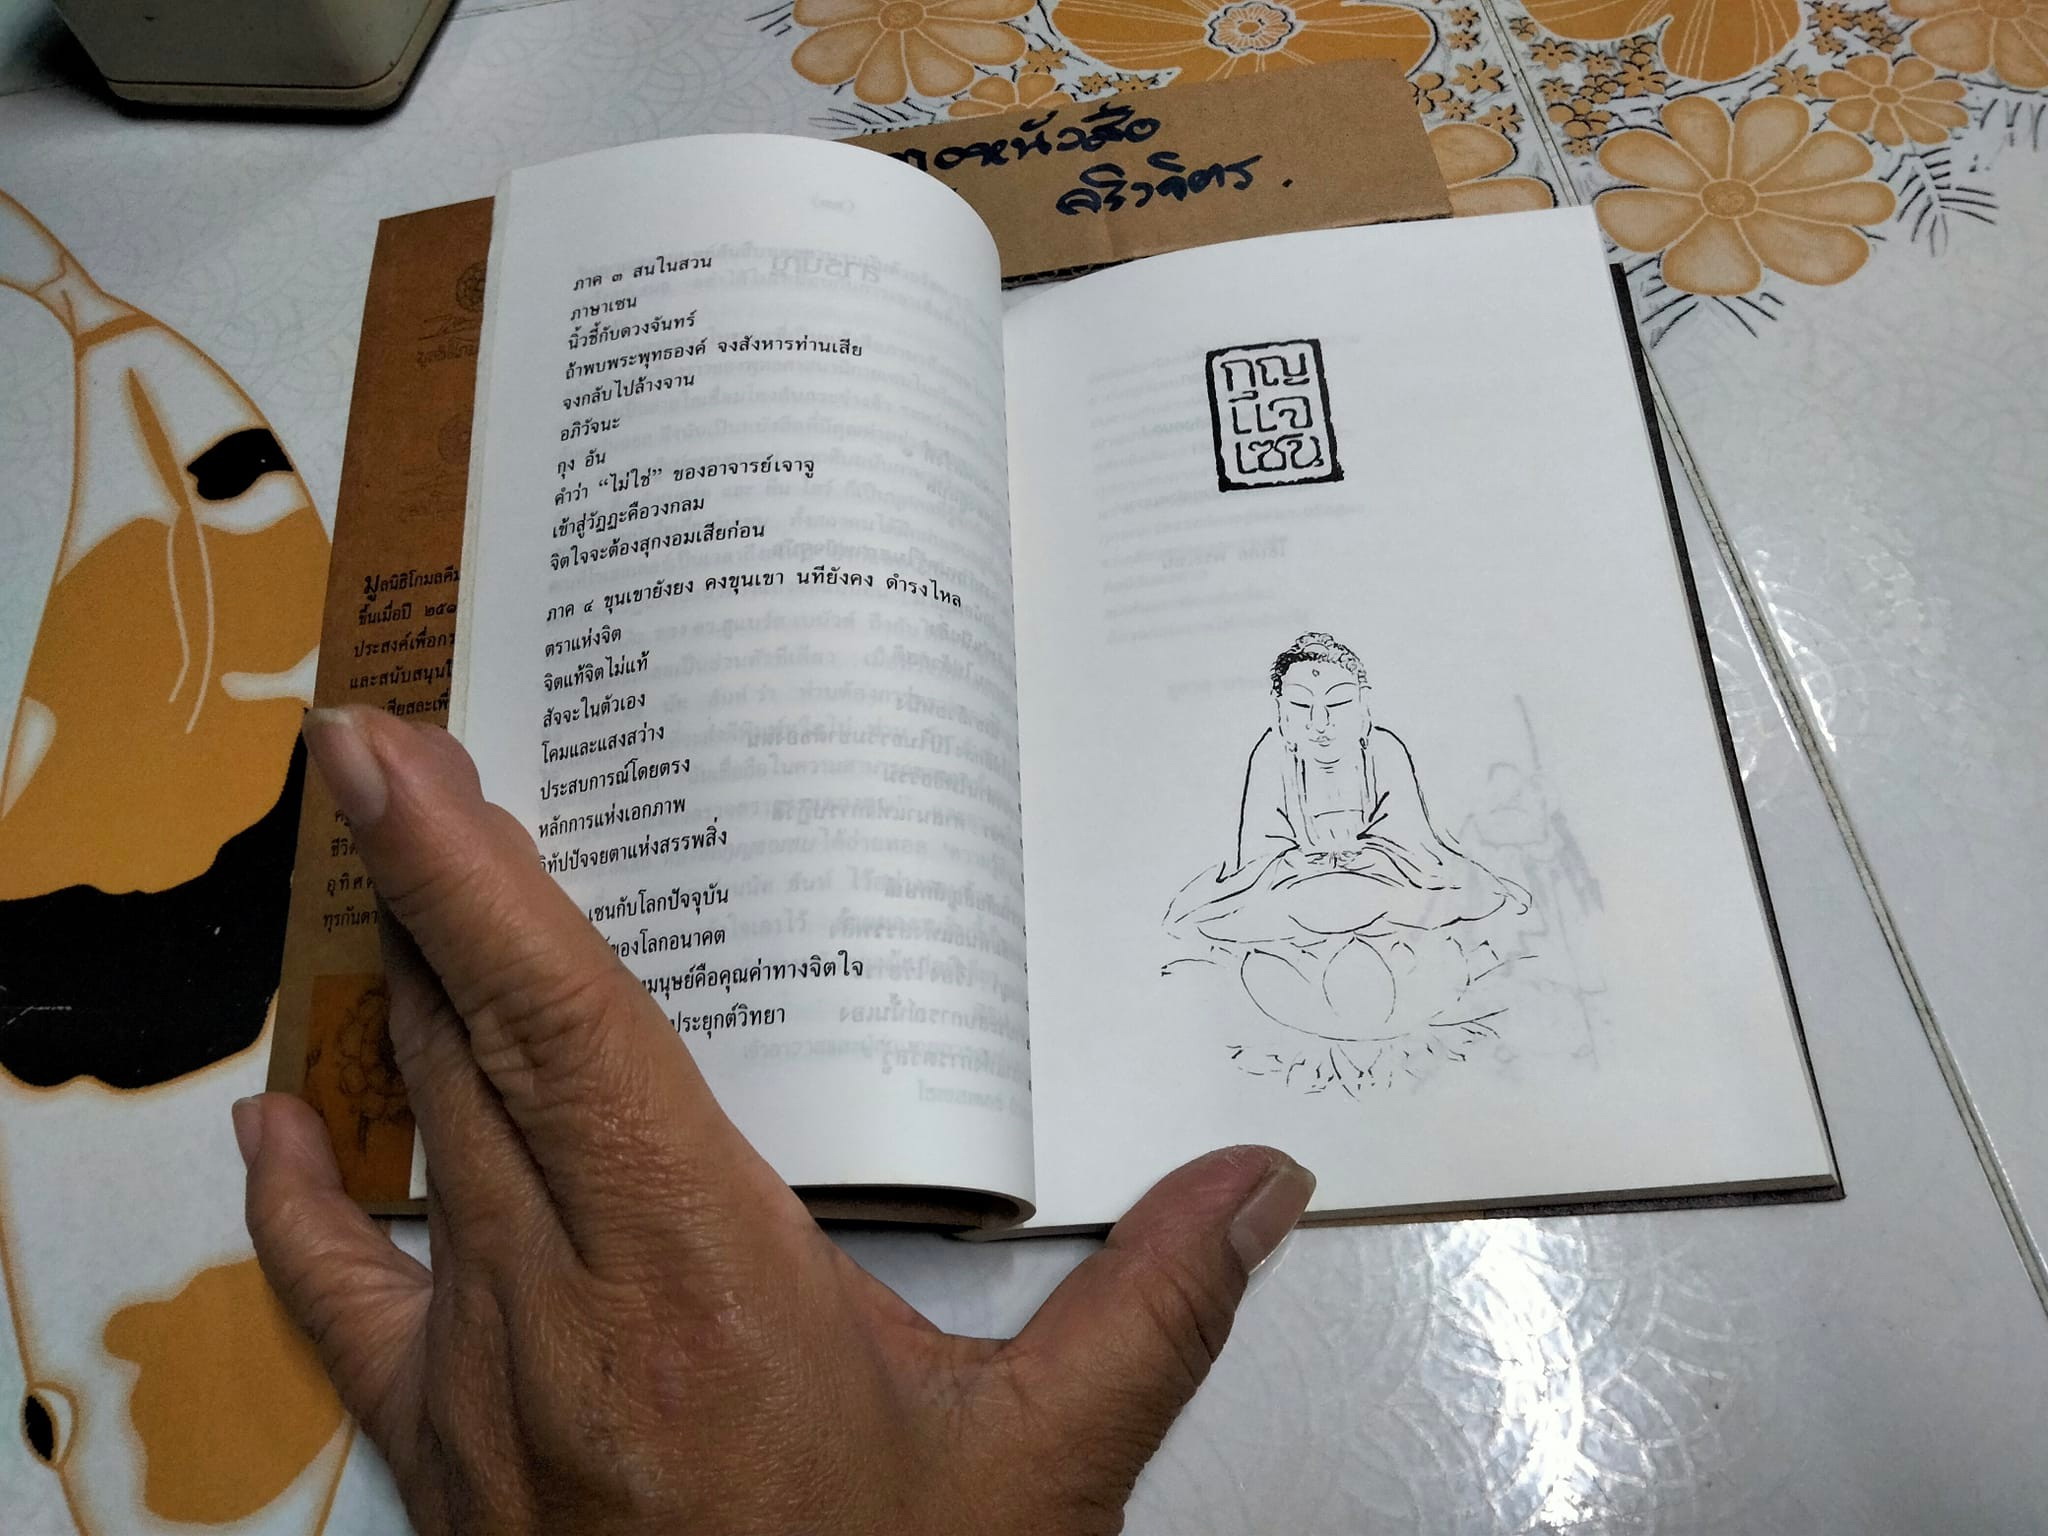 หนังสือ
ภาค ๓ สนในสวน
ภาษาเซน
นิ้วชี้กับดวงจันทร์
ถ้าพบพระพุทธองค์ จงสังหารท่านเสีย
จงกลับไปล้างจาน
อภิวัจนะ
กุง อัน
คำว่า “ไม่ใช่” ของอาจารย์เจาจู
เข้าสู่วัฏฏะคือวงกลม
จิตใจจะต้องสุกงอมเสียก่อน
ภาค ๔ ขุนเขายังยง คงขุนเขา นทียังคง ดำรงไหล
ตราแห่งจิต
จิตแท้จิตไม่แท้
สัจจะในตัวเอง
โคมและแสงสว่าง
ประสบการณ์โดยตรง
หลักการแห่งเอกภาพ
ทัปปัจจยตาแห่งสรรพสิ่ง
เซนกับโลกปัจจุบัน
ของโลกอนาคต
มนุษย์คือคุณค่าทางจิตใจ
ประยุกต์วิทยา
มูลนิธิโกมลคีม
ขึ้นเมื่อปี
ประสงค์เพื่อ
และสนับสนุน
เสียสละเพื่อ
ชีวิต
อุทิศ
ทุรกันดา
กุญ
แจ
เซน